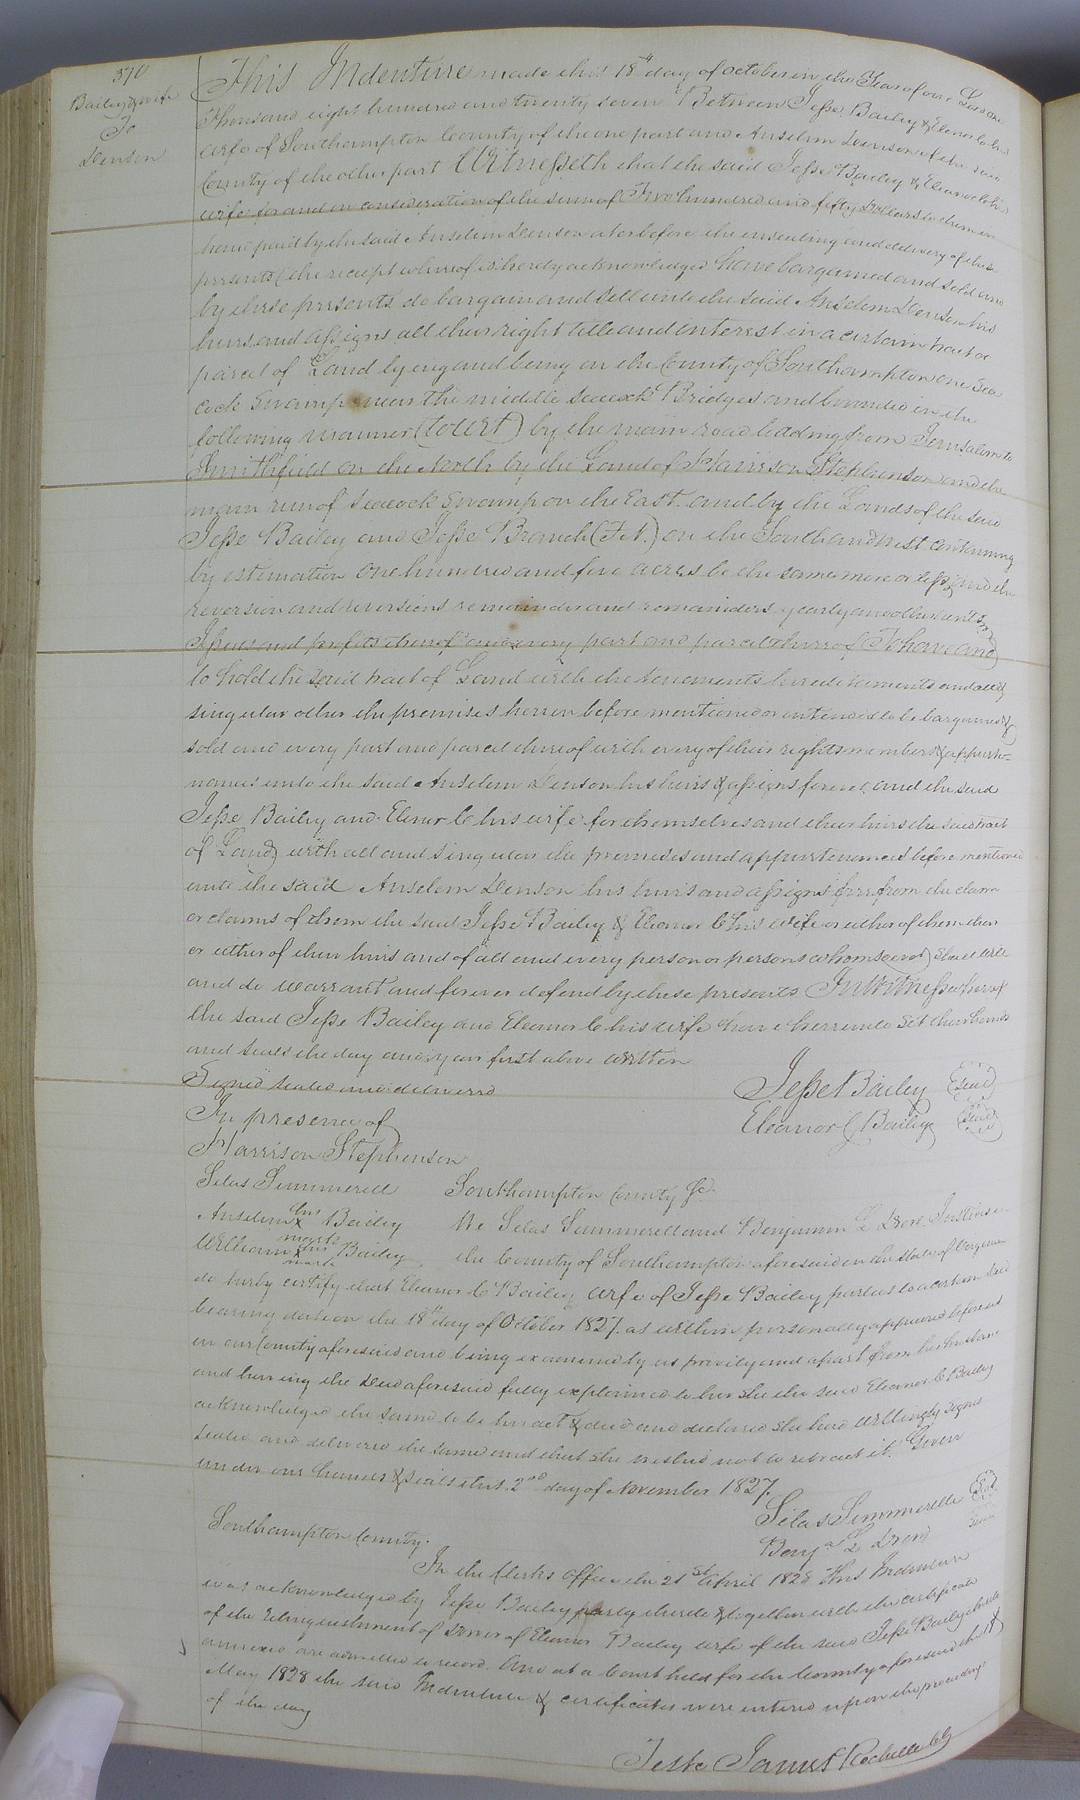 370
Bailey & wife
To
Denson
This Indenture made this 18th day of october in the Year of our Lord one
Thousand eight hundred and twenty seven Between Jesse Bailey & Eleanor C his
wife of Southampton County of the one part and Anselm Denson of the said
County of the other part Witnesseth that the said Jesse Bailey & Eleanor C his
wife for and in consideration of the sum of Two hundred and fifty Dollars to them in
hand paid by the said Anselm Denson at or before the ensealing and delivery of these
presents (the receipt whereof is hereby acknowledged have bargained and sold and
by these presents do bargain and sell unto the said Anselm Denson his
heirs and assigns all their right title and interest in a certain tract or
parcel of Land lying and being in the County of Southampton on Sea
cock Swamp near the middle Seacock Bridges and bounded in the
following manner (towit) by the main road leading from Jerusalem to
Smithfield on the North by the Land of Harrison Stephenson and the
main run of Seacock Swamp on the East and by the Lands of the said
Jesse Bailey and Jesse Branch (F N.) on the South and West containing
by estimation One hundred and five acres be the same more or less and the
reversion and reversions remainder and remainders yearly and other rents
Issues and profits thereof and every part and parcel thereof To have and
to hold the said tract of Land with the tenements hereditaments and all &
singular other the premises herein before mentioned or intended to be bargained &
sold and every part and parcel thereof with every of their rights members & appurte=
nances unto the said Anselm Denson his heirs & assigns forever and the said
Jesse Bailey and Elenor C his wife for themselves and their heirs the said tract
of Land with all and singular the premises and appurtenances before mentioned
unto the said Anselm Denson his heirs and assigns free from the claim
or claims of them the said Jesse Bailey & Eleanor C his wife or either of them their
or either of their heirs and of all and every person or persons whomsoever shall will
and do warrant and forever defend by these presents In Witness whereof
the said Jesse Bailey and Eleanor C his wife have hereunto Set their hands
and seals the day and year first above written
Signed sealed and delivered
In presence of
Jesse Bailey (seal)
Eleanor C Bailey (Seal)
Harrison Stephenson
Silas Summerell
Anselm his X mark Bailey
William his X mark Bailey
Southampton County Sc.
We Silas Summerell and Benjamin L Drew Justices in
the County of Southampton aforesaid in the State of Virginia
do hereby certify that Eleanor C Bailey wife of Jesse Bailey parties to a certain deed
bearing date on the 18th day of October 1827. as within personally appeared before us
in our County aforesaid and being examined by us privily and apart from her husband
and having the Deed aforesaid fully explained to her she the said Eleanor C Bailey
acknowledged the same to be her act & deed and declared she had willingly signed
sealed and delivered the same and that she wished not to retract it. Given
under our hands & seals this 2nd day of November 1827.
Silas Summerell Seal
Benja L Drew Seal
Southampton County.
In the Clerks Office the 21st April 1828 This Indenture
was acknowledged by Jesse Bailey party thereto & together with the certificate
of the relinquishment of Dower of Eleanor Bailey wife of the said Jesse Bailey thereto
annexed are admitted to record. And at a Court held for the County aforesaid the
May 1828 the said Indenture & certificates were entered upon the proceedings
of the day
Teste James Rochelle CC